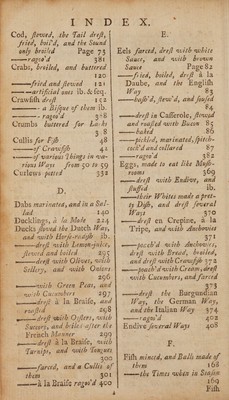 INDEX.
Cod, stewed, the Tail drest,
fried, boil'd, and the Sound
only broiled Page 75
——ragoo'd 381
Crabs, broiled, and buttered
120
——fried and stewed 121
——artificial ones ib. & seq.
Crawfish drest 152
——a Bisque of them ib.
——ragoo'd 388
Crumbs buttered for
Cullis for Fish 48
——of Crawfish 41
——of various Things in va-
rious Ways from 50 to 59
Curlews potted 352
D.
Dabs marinated, and in a Sal-
lad 140
Ducklings, à la Mode 224
Ducks stewed the Dutch Way,
and with Horse-radish ib.
——drest with Lemon-juice,
stewed and boiled 295
——drest with Olives, with
Sellery, and with Onions
296
——with Green Peas, and
with Cucumbers 297
——drest à la Braise, and
roasted 298
——drest with Oysters, with
Succory, and boiled after the
French Manner 299
——drest à la Braise, with
Turnips, and with Tongues
300
——farced, and a Cullis of
them 301
——à la Braise ragoo'd 400
E.
Eels farced, drest with white
Sauce, and with brown
Sauce Page 82
——fried, boiled, drest à la
Daube, and the English
Way 83
——hash'd, stew'd, and soused
84
——drest in Casserole, stewed
and roasted with Bacon 85
——baked 86
——pickled, marinated, spitch-
cock'd and collared 87
——ragoo'd 382
Eggs, made to eat like Mush-
rooms 369
——drest with Endive, and
stuffed ib.
——their Whites made a pret-
ty Dish, and drest several
Ways 370
——drest en Crepine, à la
Tripe, and with Anchovies
371
——poach'd with Anchovies,
drest with Bread, broiled,
and drest with Crawfish 372
——poach'd with Cream, drest
with Cucumbers, and farced
373
——drest the Burgundian
Way, the German Way,
and the Italian Way 374
——ragoo'd 402
Endive several Ways 408
F.
Fish minced, and Balls made of
them 168
——the Times when in Season
169
Fish